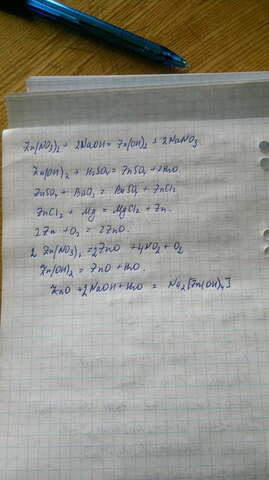 Zn(NO3)2 + 2NaOH = Zn(OH)2 + 2NaNO3
Zn(OH)2 + H2SO4 = ZnSO4 + 2H2O
ZnSO4 + BaCl2 = BaSO4 + ZnCl2
ZnCl2 + Mg = MgCl2 + Zn.
2Zn + O2 = 2ZnO.
2 Zn(NO3)2 = 2ZnO + 4NO2 + O2
Zn(OH)2 = ZnO + H2O.
ZnO + 2NaOH + H2O = Na2[Zn(OH)4]